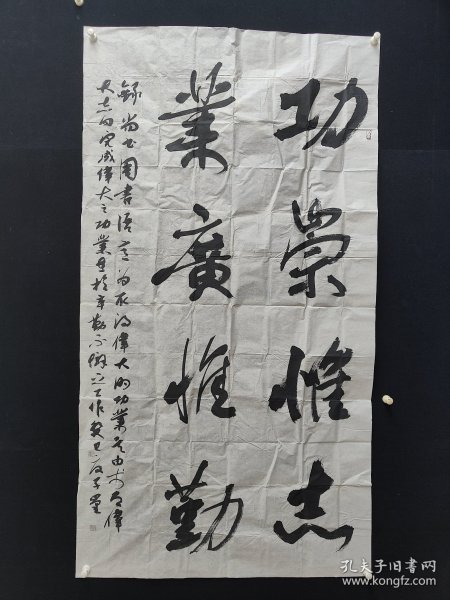 功崇惟志
業廣惟勤
錄尚书周書语意为取得偉大的功業是由於有偉
大志向完成偉大之功業在於辛勤不懈之工作癸巳
孔夫子旧书网
kongfz.com